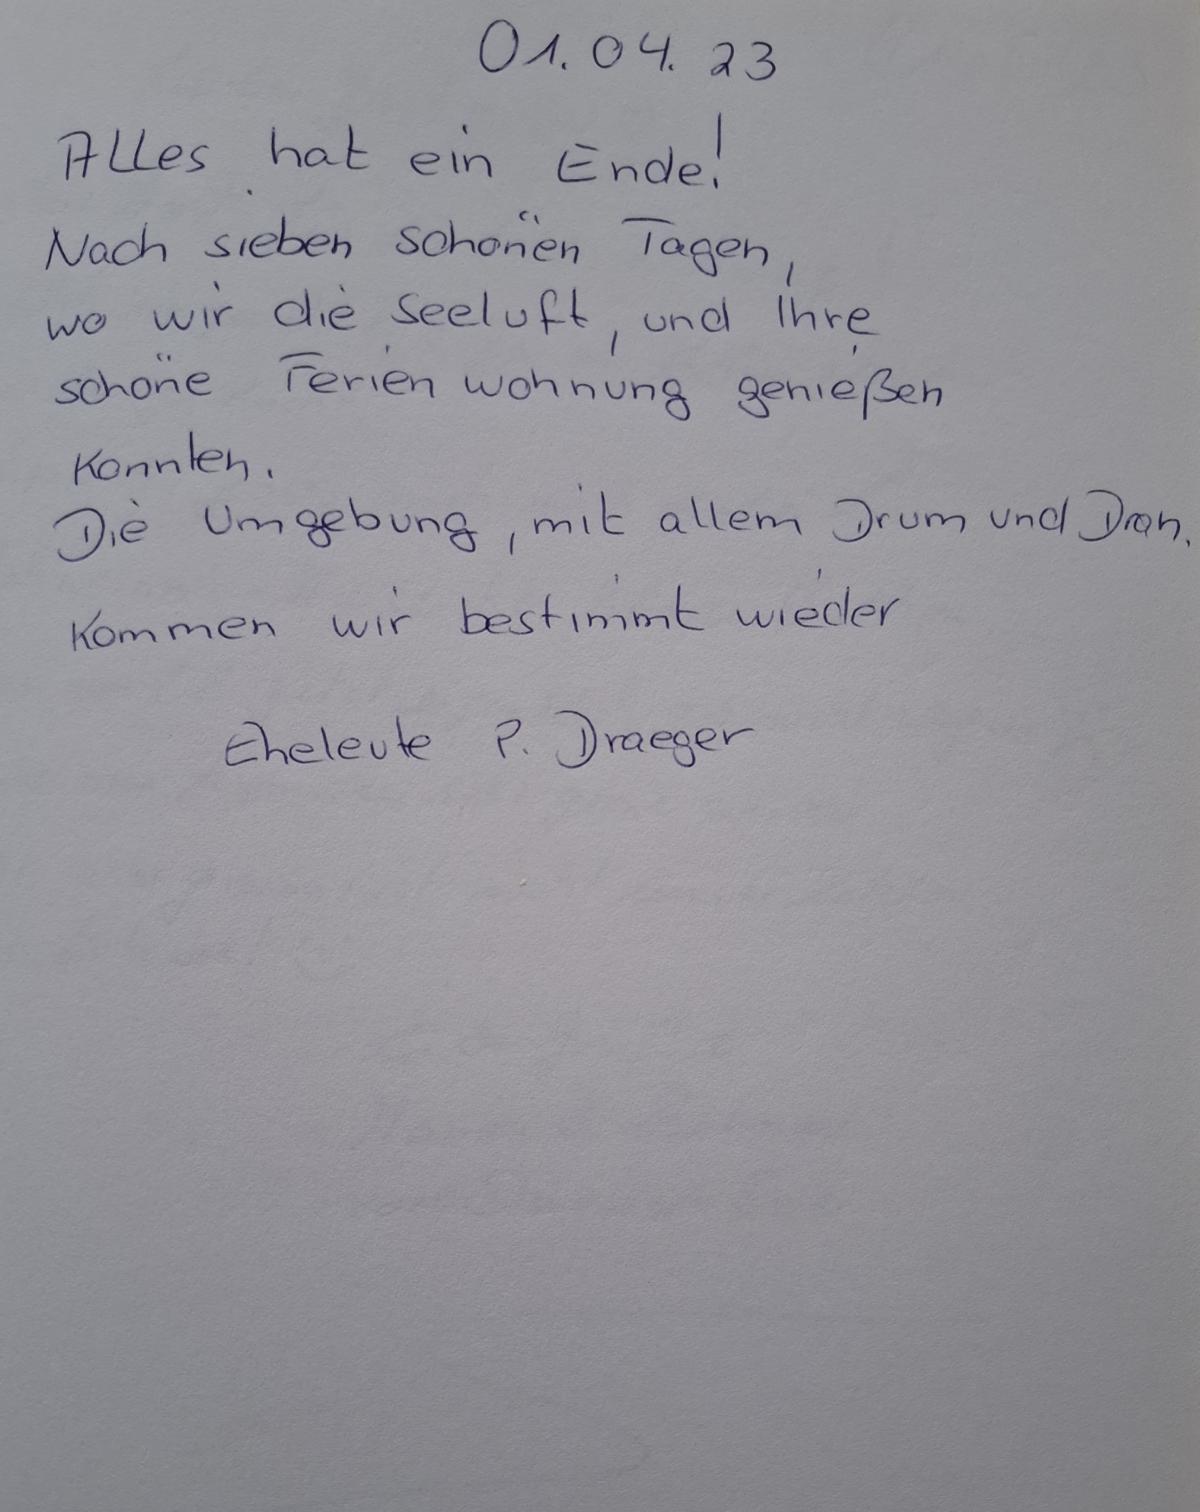 01.04.23
Alles hat ein Ende!
Nach sieben schönen Tagen,
wo wir die Seeluft, und Ihre
schöne Ferienwohnung genießen
konnten.
Die Umgebung, mit allem Drum und Dran.
Kommen wir bestimmt wieder
Eheleute P. Draeger